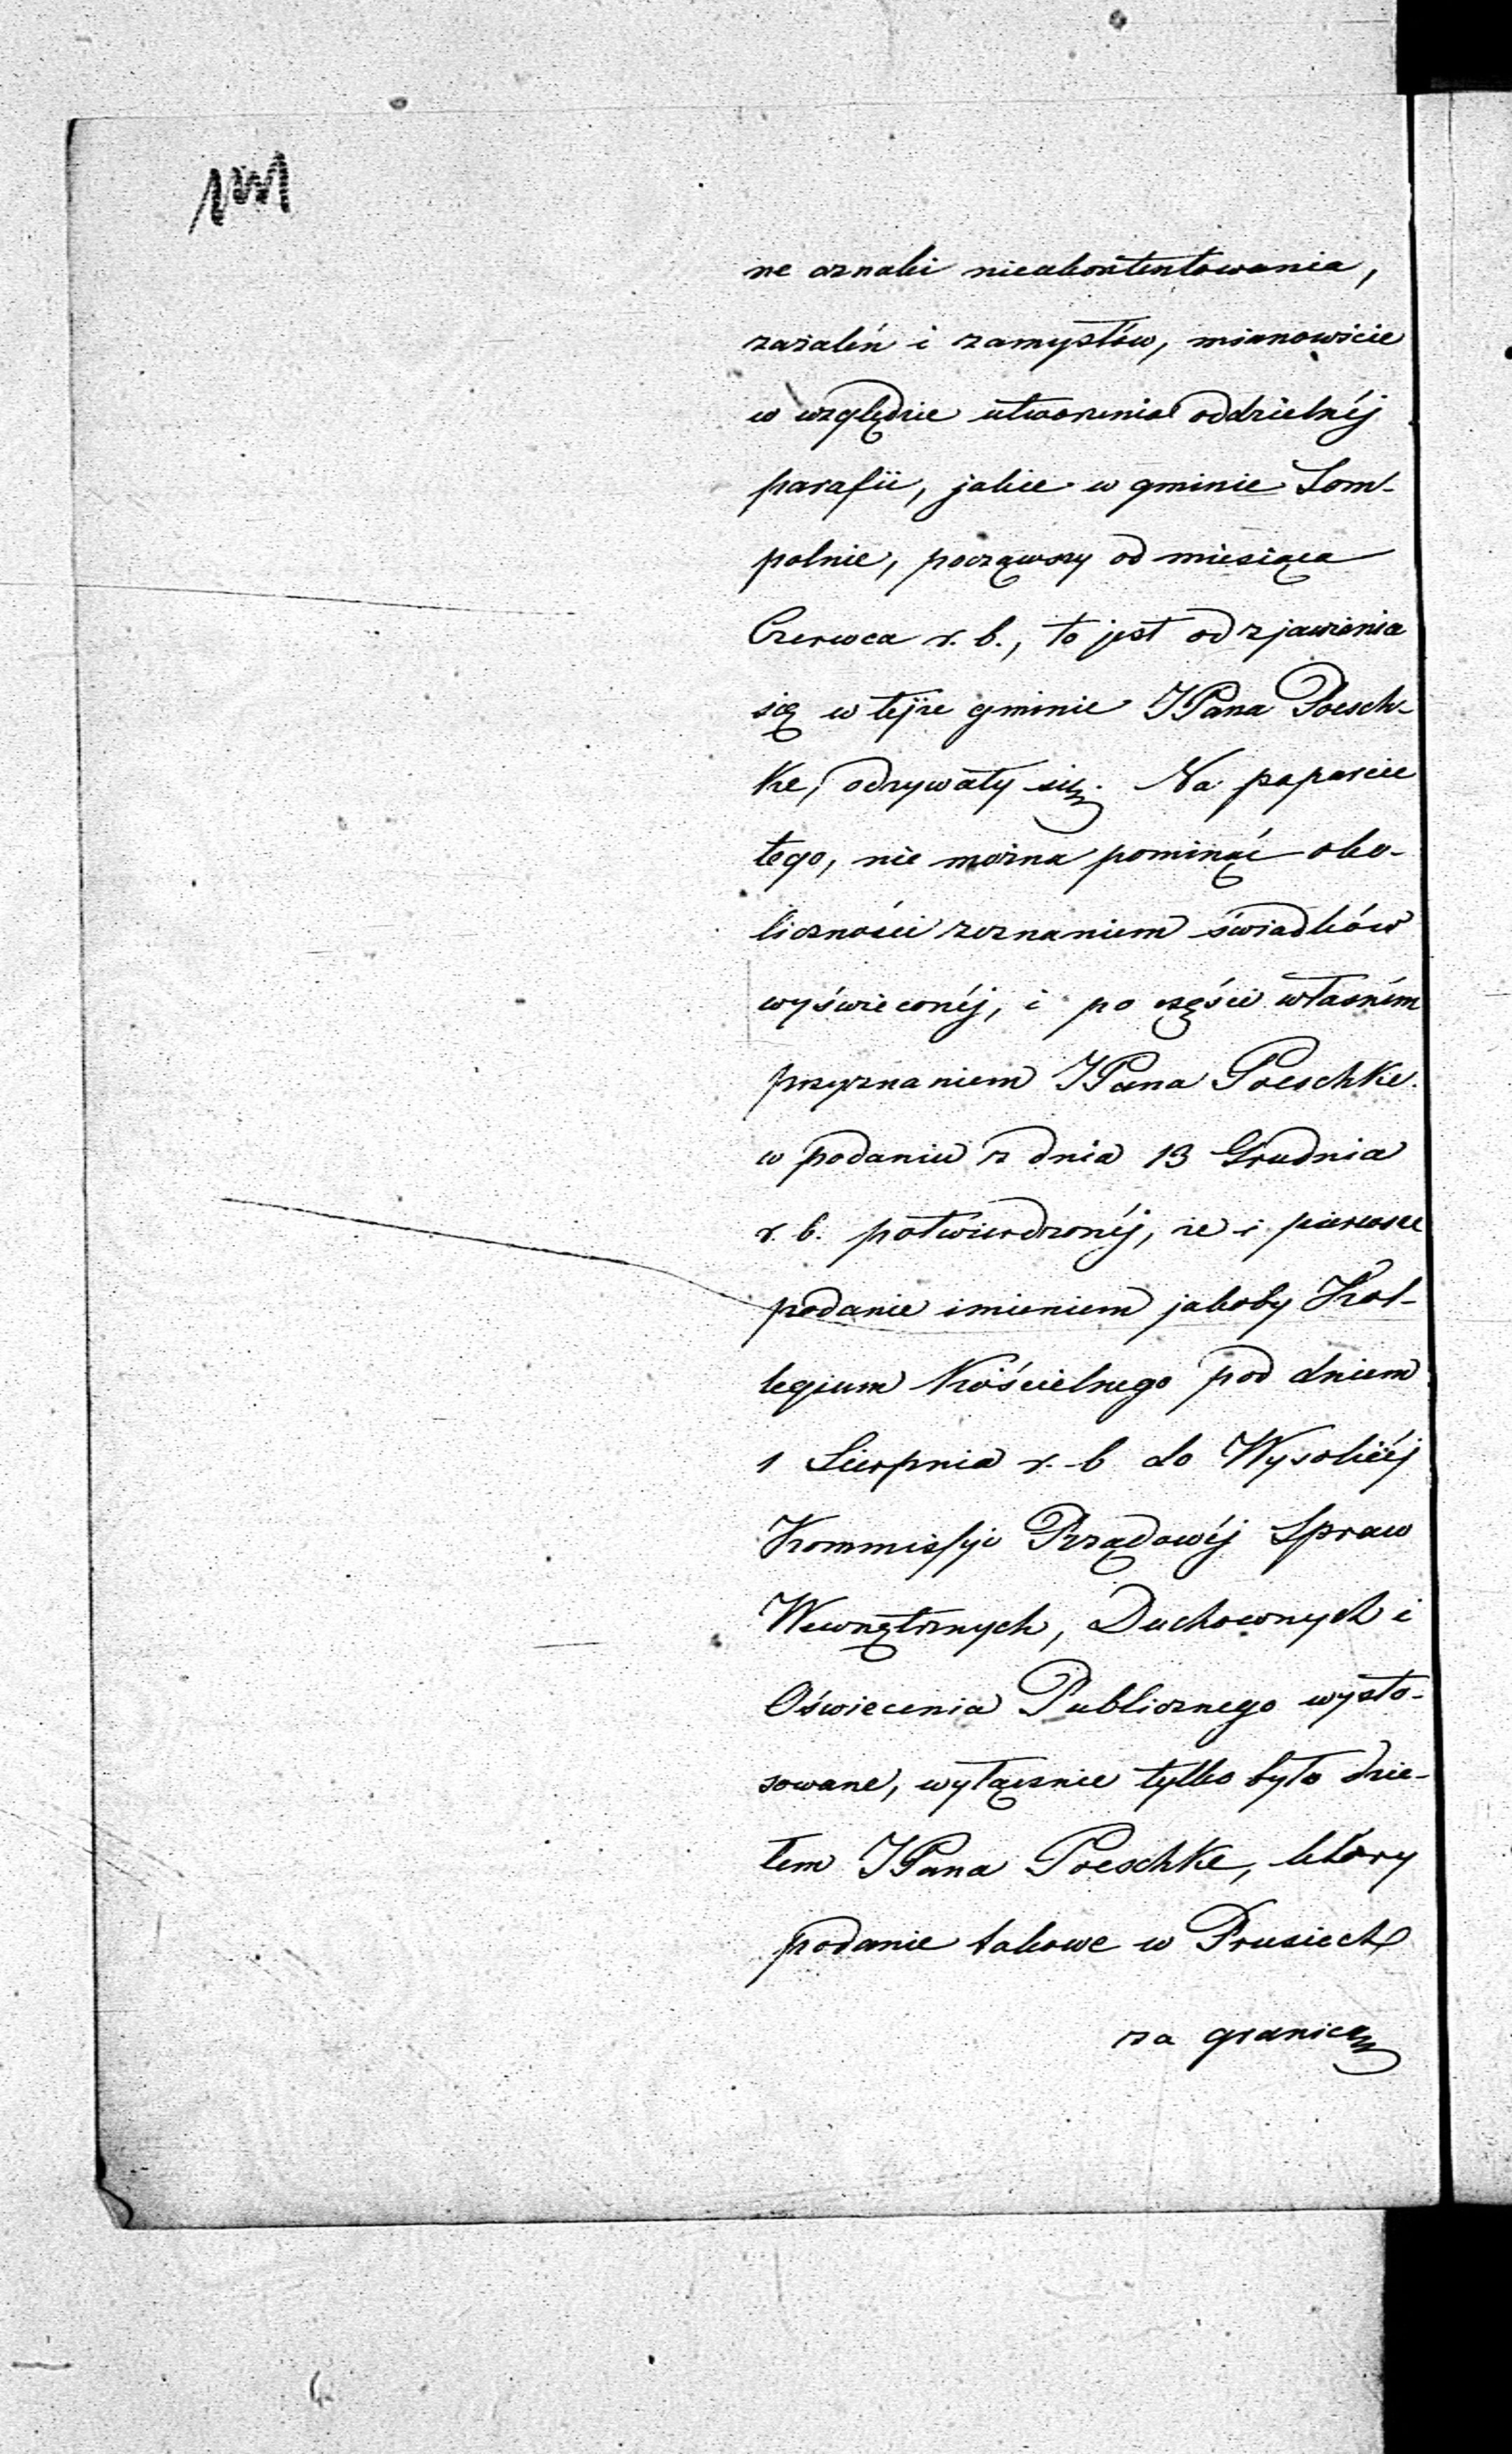 ne oznaki nieukontentowania,
zażaleń i zamysłów, mianowicie
w względzie utworzenia oddzielnéj
parafii, jakie w gminie Som-
polnie, począwszy od miesiąca
Czerwca r. b., to jest od zjawienia
się w tejże gminie JPana Poesch-
ke, odzywały się. Na poparcie
tego, nie można pominąć oko-
liczności zeznaniem świadków
wyświeconéj, i po części własném
przyznaniem JPana Poeschke
w podaniu z dnia 13 Grudnia
r. b. potwierdzonéj, że i pierwsze
podanie imieniem jakoby Kol-
legium Kościelnego pod dniem
1 Sierpnia r. b do Wysokiéj
Kommissyi Rządowéj Spraw
Wewnętrznych, Duchownych i
Oświecenia Publicznego wysto-
sowane, wyłącznie tylko było dzie-
łem JPana Poeschke, który
podanie takowe w Prusiech
za granicą